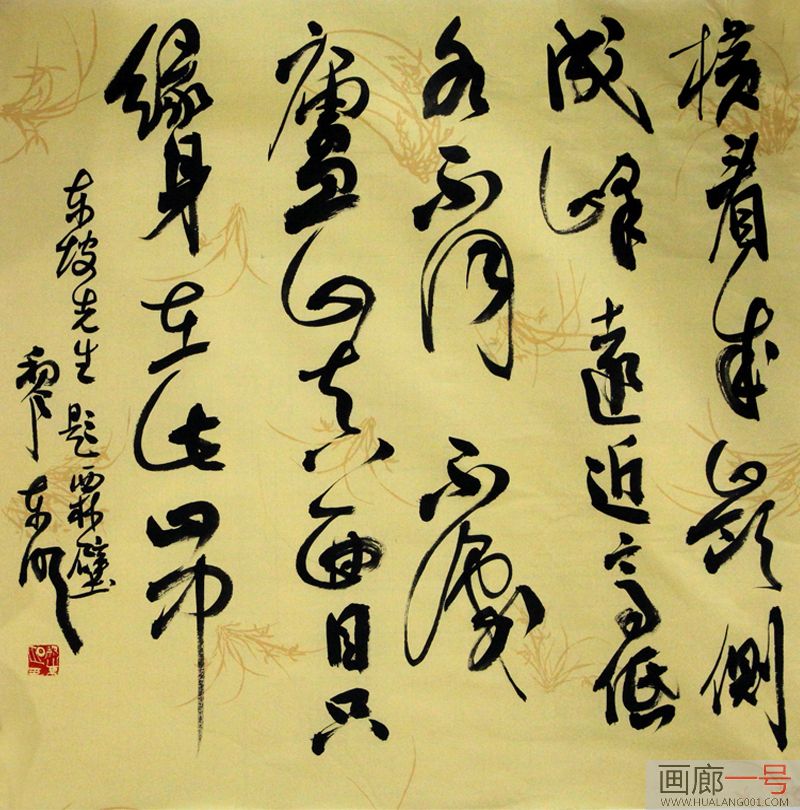 横看成嶺側
成峰遠近高低
各不同不識
廬山真面目只
緣身在此山中
东坡先生题西林壁
黎东明
画廊一号
WWW.HUALANG001.COM